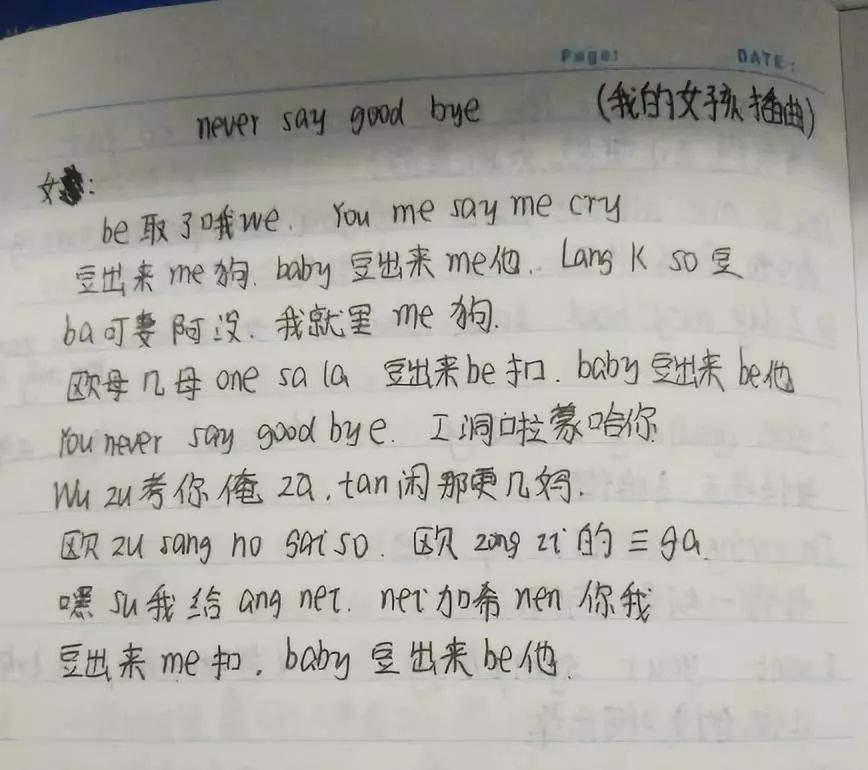 Page:
DATE:
never say good bye (我的女孩插曲)
女:
be取了哦we. You me say me cry
豆出来 me狗. baby 豆出来 me他. Lang K so 豆
ba可妻阿没. 我就里 me 狗.
欧母几母one sa la 豆出来be扣. baby 豆出来 be他
You never say good bye. 工洞啦蒙哈你
Wu zu考你俺 za. tan闲那更几妈.
欧 zu sang no sai so. 欧 zong zi 的 三 ga.
嘿 su我给 ang nei. nei加希 nen 你我
豆出来 me 扣. baby 豆出来 be他.